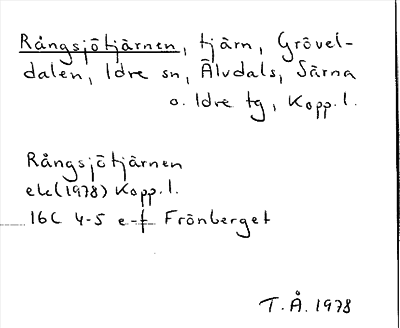 Rångsjötjärnen, tjärn, Grövel-
dalen, Idre sn, Älvdals, Särna
o. Idre tg, Kopp. l.
Rångsjötjärnen
ek (1978) Kopp. l.
16C 4-5 e-f Frönberget
T.Å. 1978